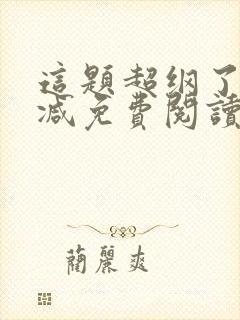 這題超綱了
減免費閱讀
蘭麗爽